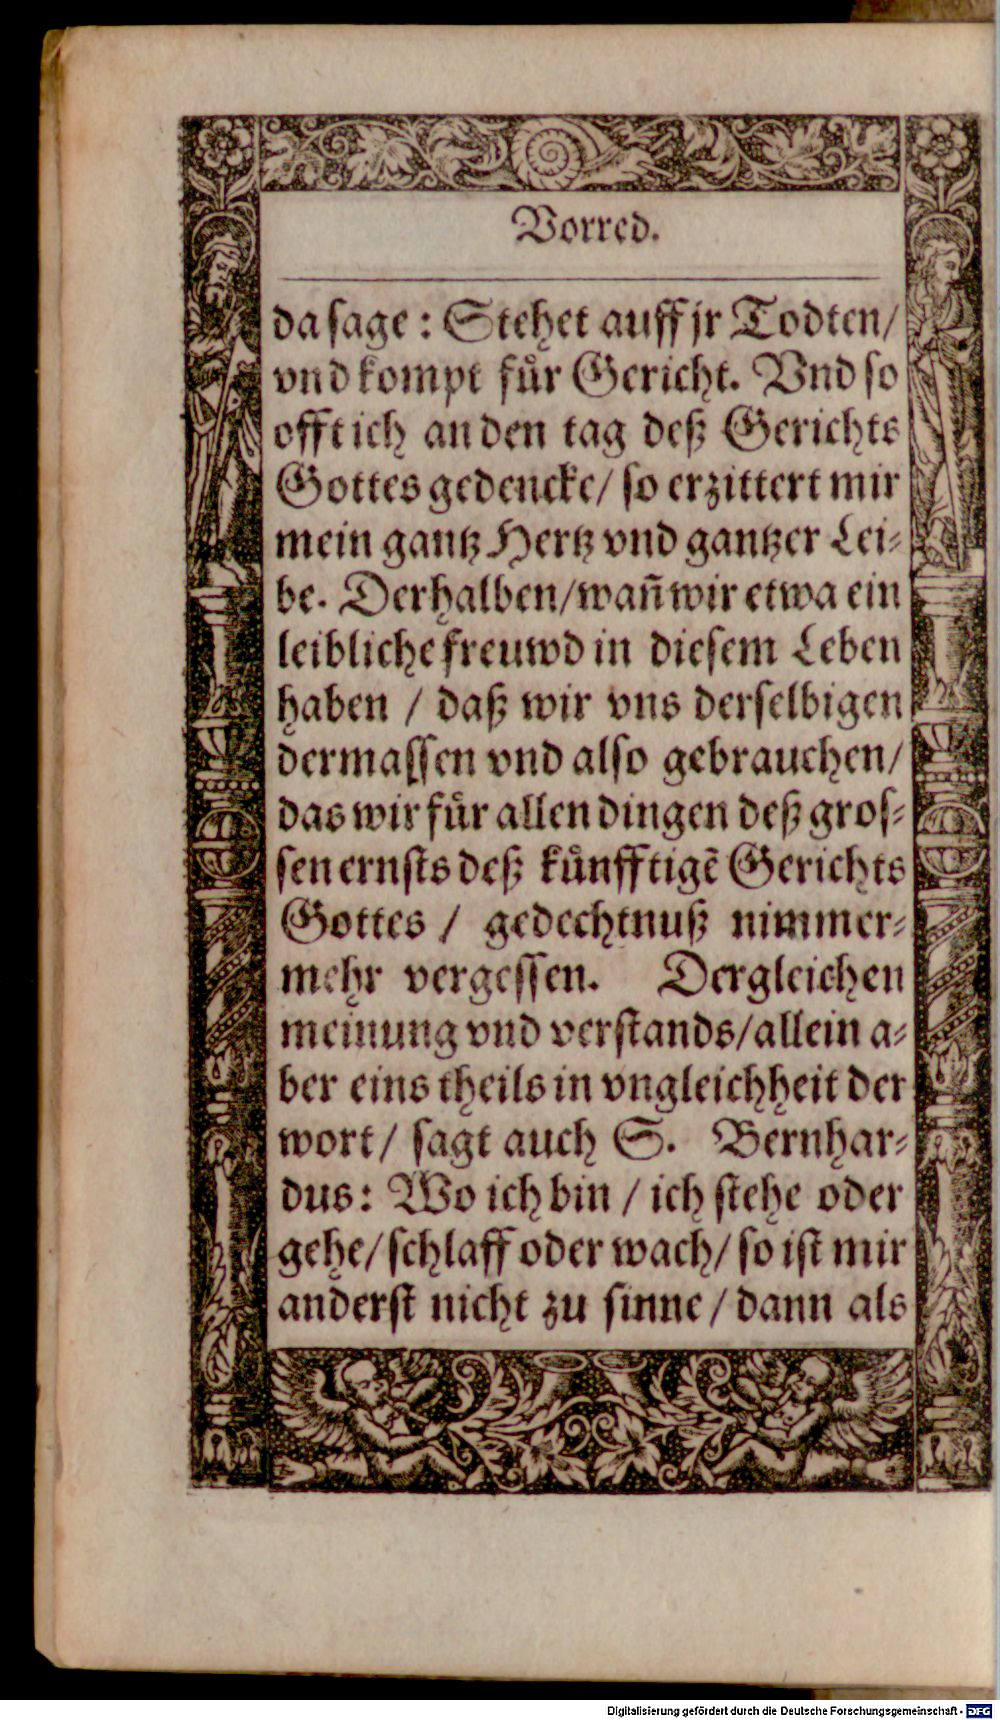 Vorred.
da sage: Stehet auff jr Todten/
vnd kompt fuͤr Gericht. Vnd so
offt ich an den tag deß Gerichts
Gottes gedencke/ so erzittert mir
mein gantz Hertz vnd gantzer Lei⸗
be. Derhalben/ wañ wir etwa ein
leibliche freuwd in diesem Leben
haben / daß wir vns derselbigen
dermassen vnd also gebrauchen/
das wir fuͤr allen dingen deß gros⸗
sen ernsts deß kuͤnfftigẽ Gerichts
Gottes / gedechtnuß nimmer⸗
mehr vergessen. Dergleichen
meinung vnd verstands/ allein a⸗
ber eins theils in vngleichheit der
wort/ sagt auch S. Bernhar⸗
dus: Wo ich bin / ich stehe oder
gehe/ schlaff oder wach/ so ist mir
anderst nicht zu sinne/ dann als
Digitalisierung gefördert durch die Deutsche Forschungsgemeinschaft - DFG